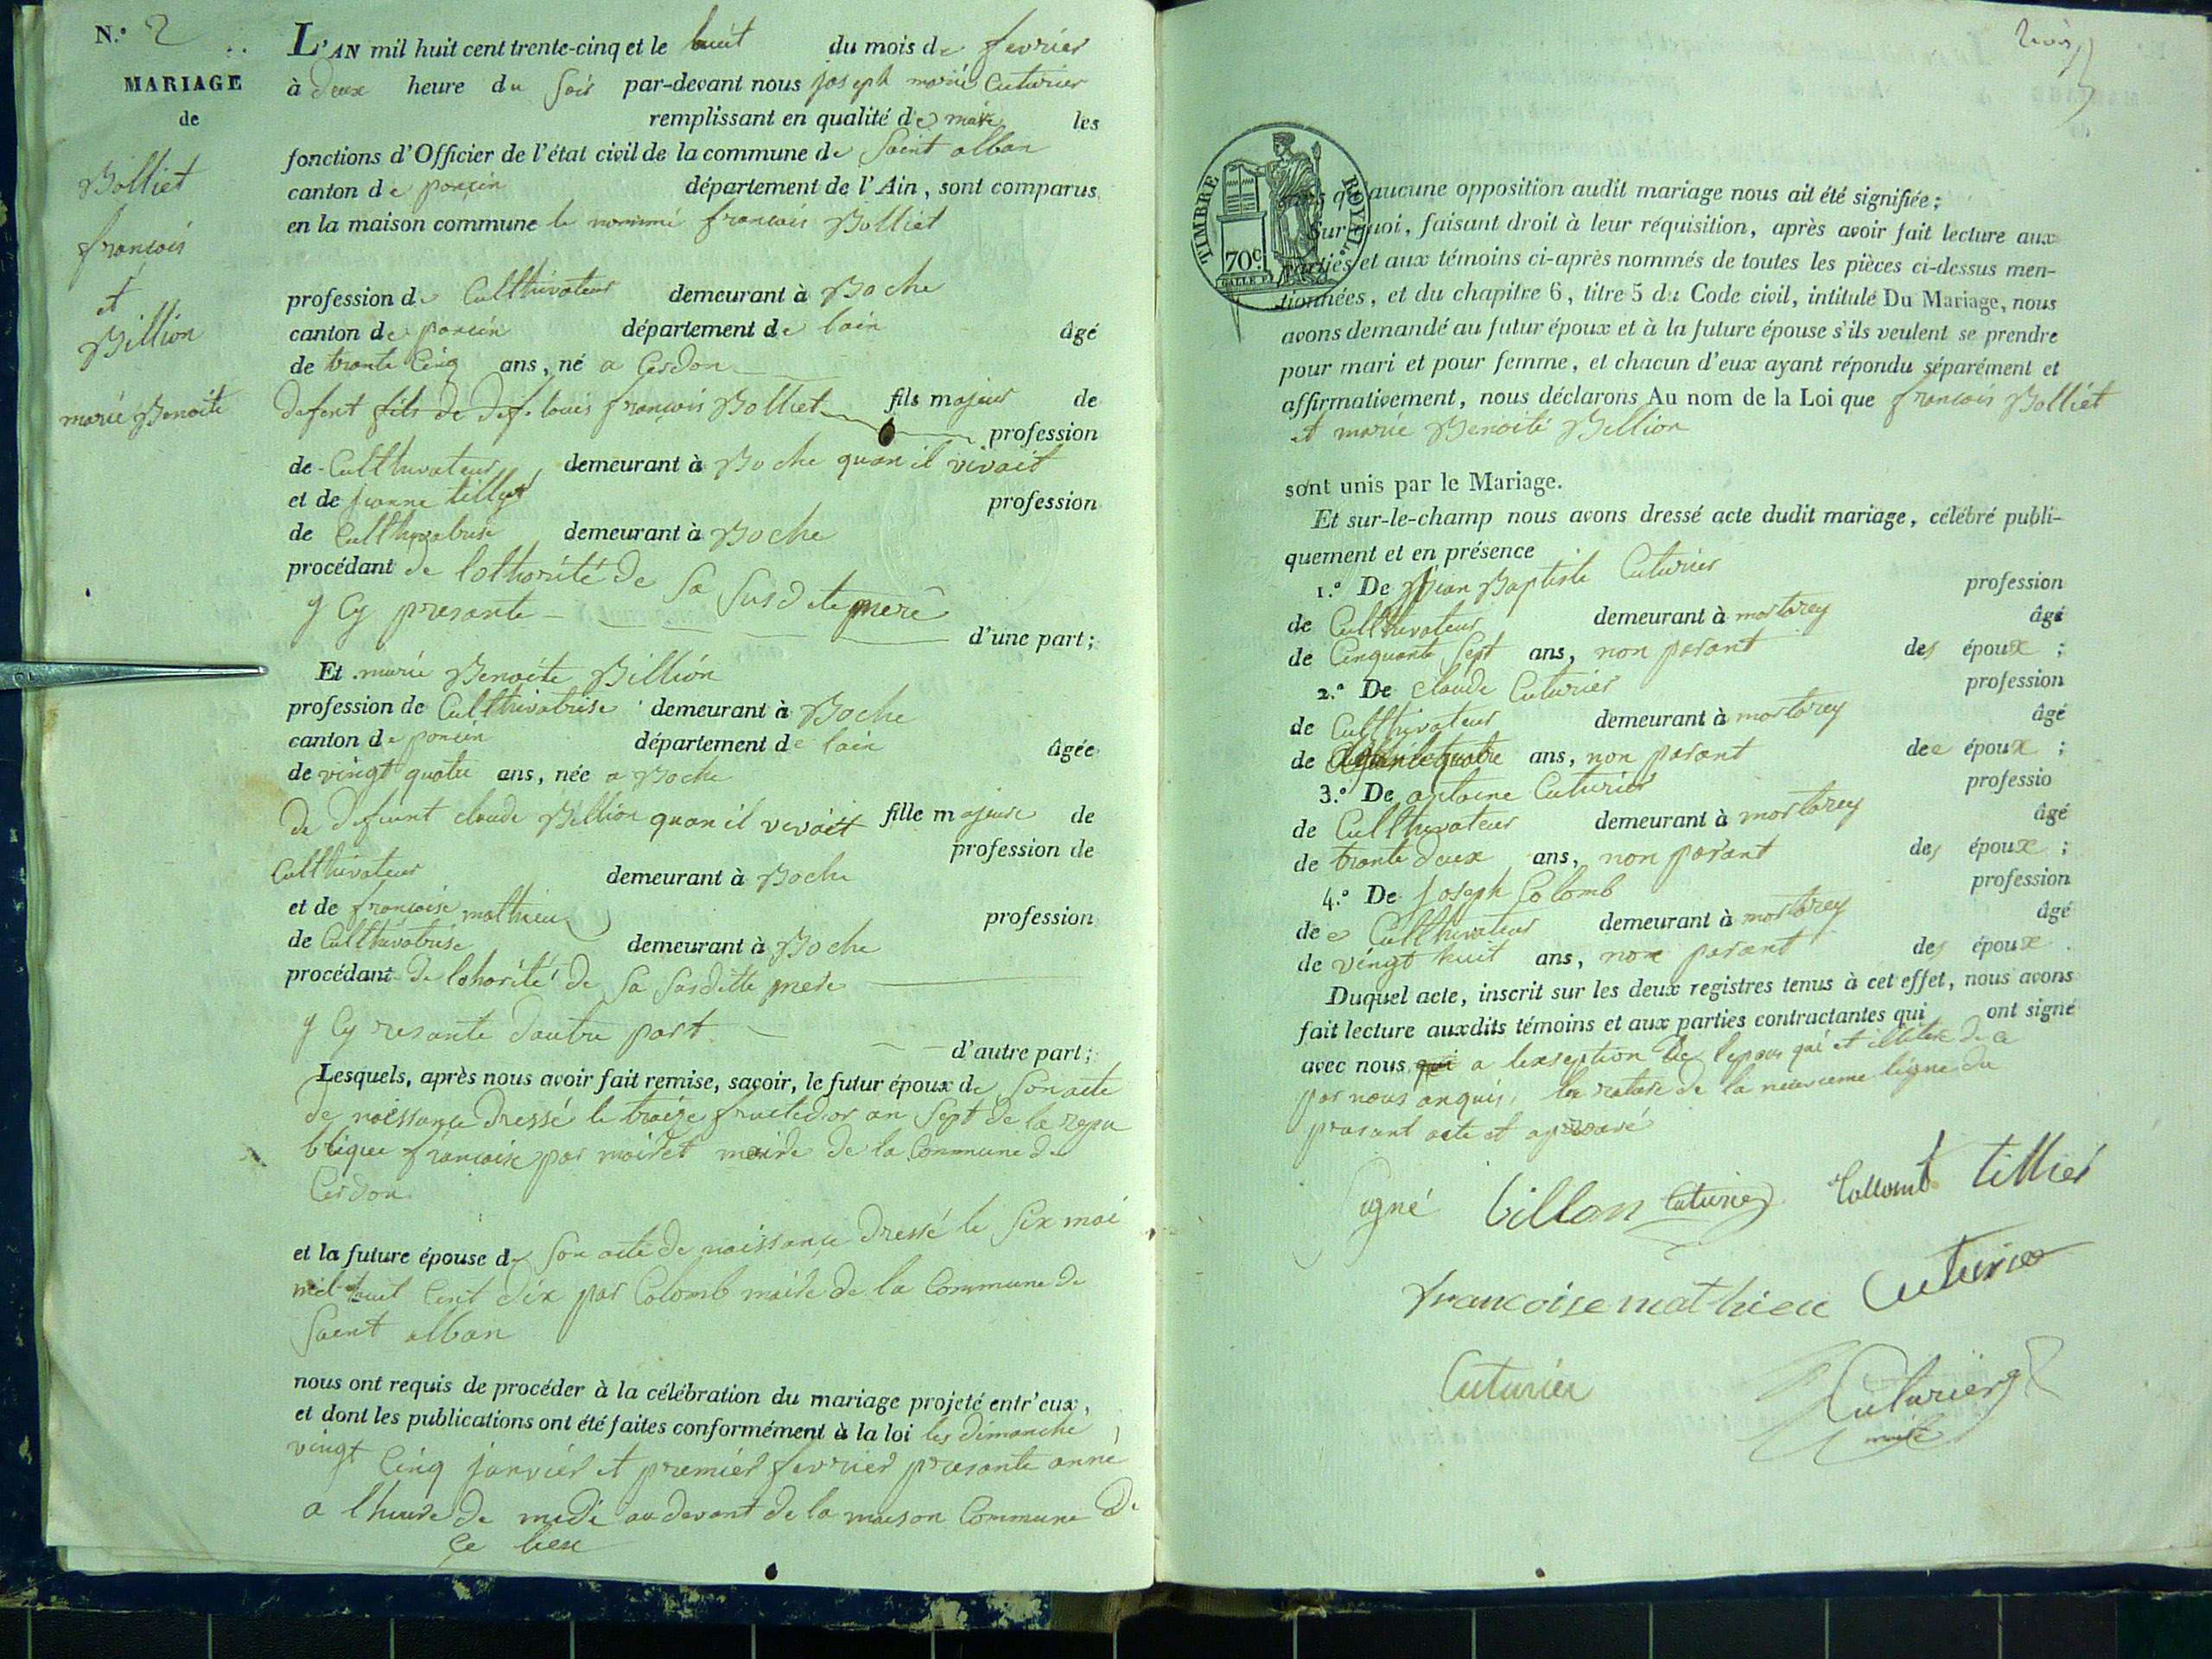 N.° 2
MARIAGE
de
Bolliet
françois
et
Billion
marie Benoite
L'AN mil huit cent trente-cinq et le huit du mois de fevrier
à deux heure du soir par-devant nous joseph marie Cuturier
remplissant en qualité de maire les
fonctions d'Officier de l'état civil de la commune de Saint alban
canton de poncin département de l'Ain, sont comparus
en la maison commune le nommé francois Bolliet
profession de Culthivateur demeurant à Boche
canton de poncin département de lain âgé
de trante Cinq ans, né a Cerdon
defent fils de def. louis françois Bolliet fils majeur de
profession
de Culthivateur demeurant à Boche quan il vivait
et de jeanne tillier profession
de Culthivatrise demeurant à Boche
procédant de lothorité de sa susdite mere
y Cy presante d'une part;
Et marie Benoite Billion
profession de Culthivatrise demeurant à Boche
canton de poncin département de lain âgée
de vingt quatre ans, née a Boche
de defunt claude Billion quan il vivait fille majeure de
profession de
Culthivateur demeurant à Boche
et de francoise mathieu profession
de Culthivatrise demeurant à Boche
procédant de lohorité de sa susditte mere
y Cy resante dautre part
d'autre part;
Lesquels, après nous avoir fait remise, savoir, le futur époux de son acte
de naissance dressé le traize fructidor an sept de la repu
blique francaise par moiret maire de la Commune de
Cerdon
et la future épouse de son acte de naissance dressé le six mai
mil huit Cent dix par Colomb maire de la Commune de
Saint alban
nous ont requis de procéder à la célébration du mariage projeté entr'eux,
et dont les publications ont été faites conformément à la loi les dimanche
vingt Cinq janvier et premier fevrier presante anné
a lheure de midi au devant de la maison Commune de
Ce lieu
TIMBRE ROYAL
70c.
sans qu'aucune opposition audit mariage nous ait été signifiée;
Sur quoi, faisant droit à leur réquisition, après avoir fait lecture aux
parties et aux témoins ci-après nommés de toutes les pièces ci-dessus men-
tionnées, et du chapitre 6, titre 5 du Code civil, intitulé Du Mariage, nous
avons demandé au futur époux et à la future épouse s'ils veulent se prendre
pour mari et pour femme, et chacun d'eux ayant répondu séparément et
affirmativement, nous déclarons Au nom de la Loi que francois Bolliet
et marie Benoite Billion
sont unis par le Mariage.
Et sur-le-champ nous avons dressé acte dudit mariage, célébré publi-
quement et en présence
1.° De Jean Baptiste Cuturier profession
de Culthivateur demeurant à mortarey âgé
de Cinquante Sept ans, non parant des époux ;
2.° De claude Cuturier profession
de Culthivateur demeurant à mortarey âgé
de quatre ans, non parant dee époux ;
3.° De antoine Cuturier professio
de Culthivateur demeurant à mortarey âgé
de trante deux ans, non parant des époux ;
4.° De Joseph Colomb profession
de Culthivateur demeurant à mortarey âgé
de vingt huit ans, non parant des époux.
Duquel acte, inscrit sur les deux registres tenus à cet effet, nous avons
fait lecture auxdits témoins et aux parties contractantes qui ont signé
avec nous qui a lexseption de lepoux qui et illitere de ce
par nous anquis, la rature de la neuvieme ligne du
prasant acte et aprouvé
Signé billon Cuturier Collomb tillier
francoise mathieu Cuturier
Cuturier
Cuturier
maire